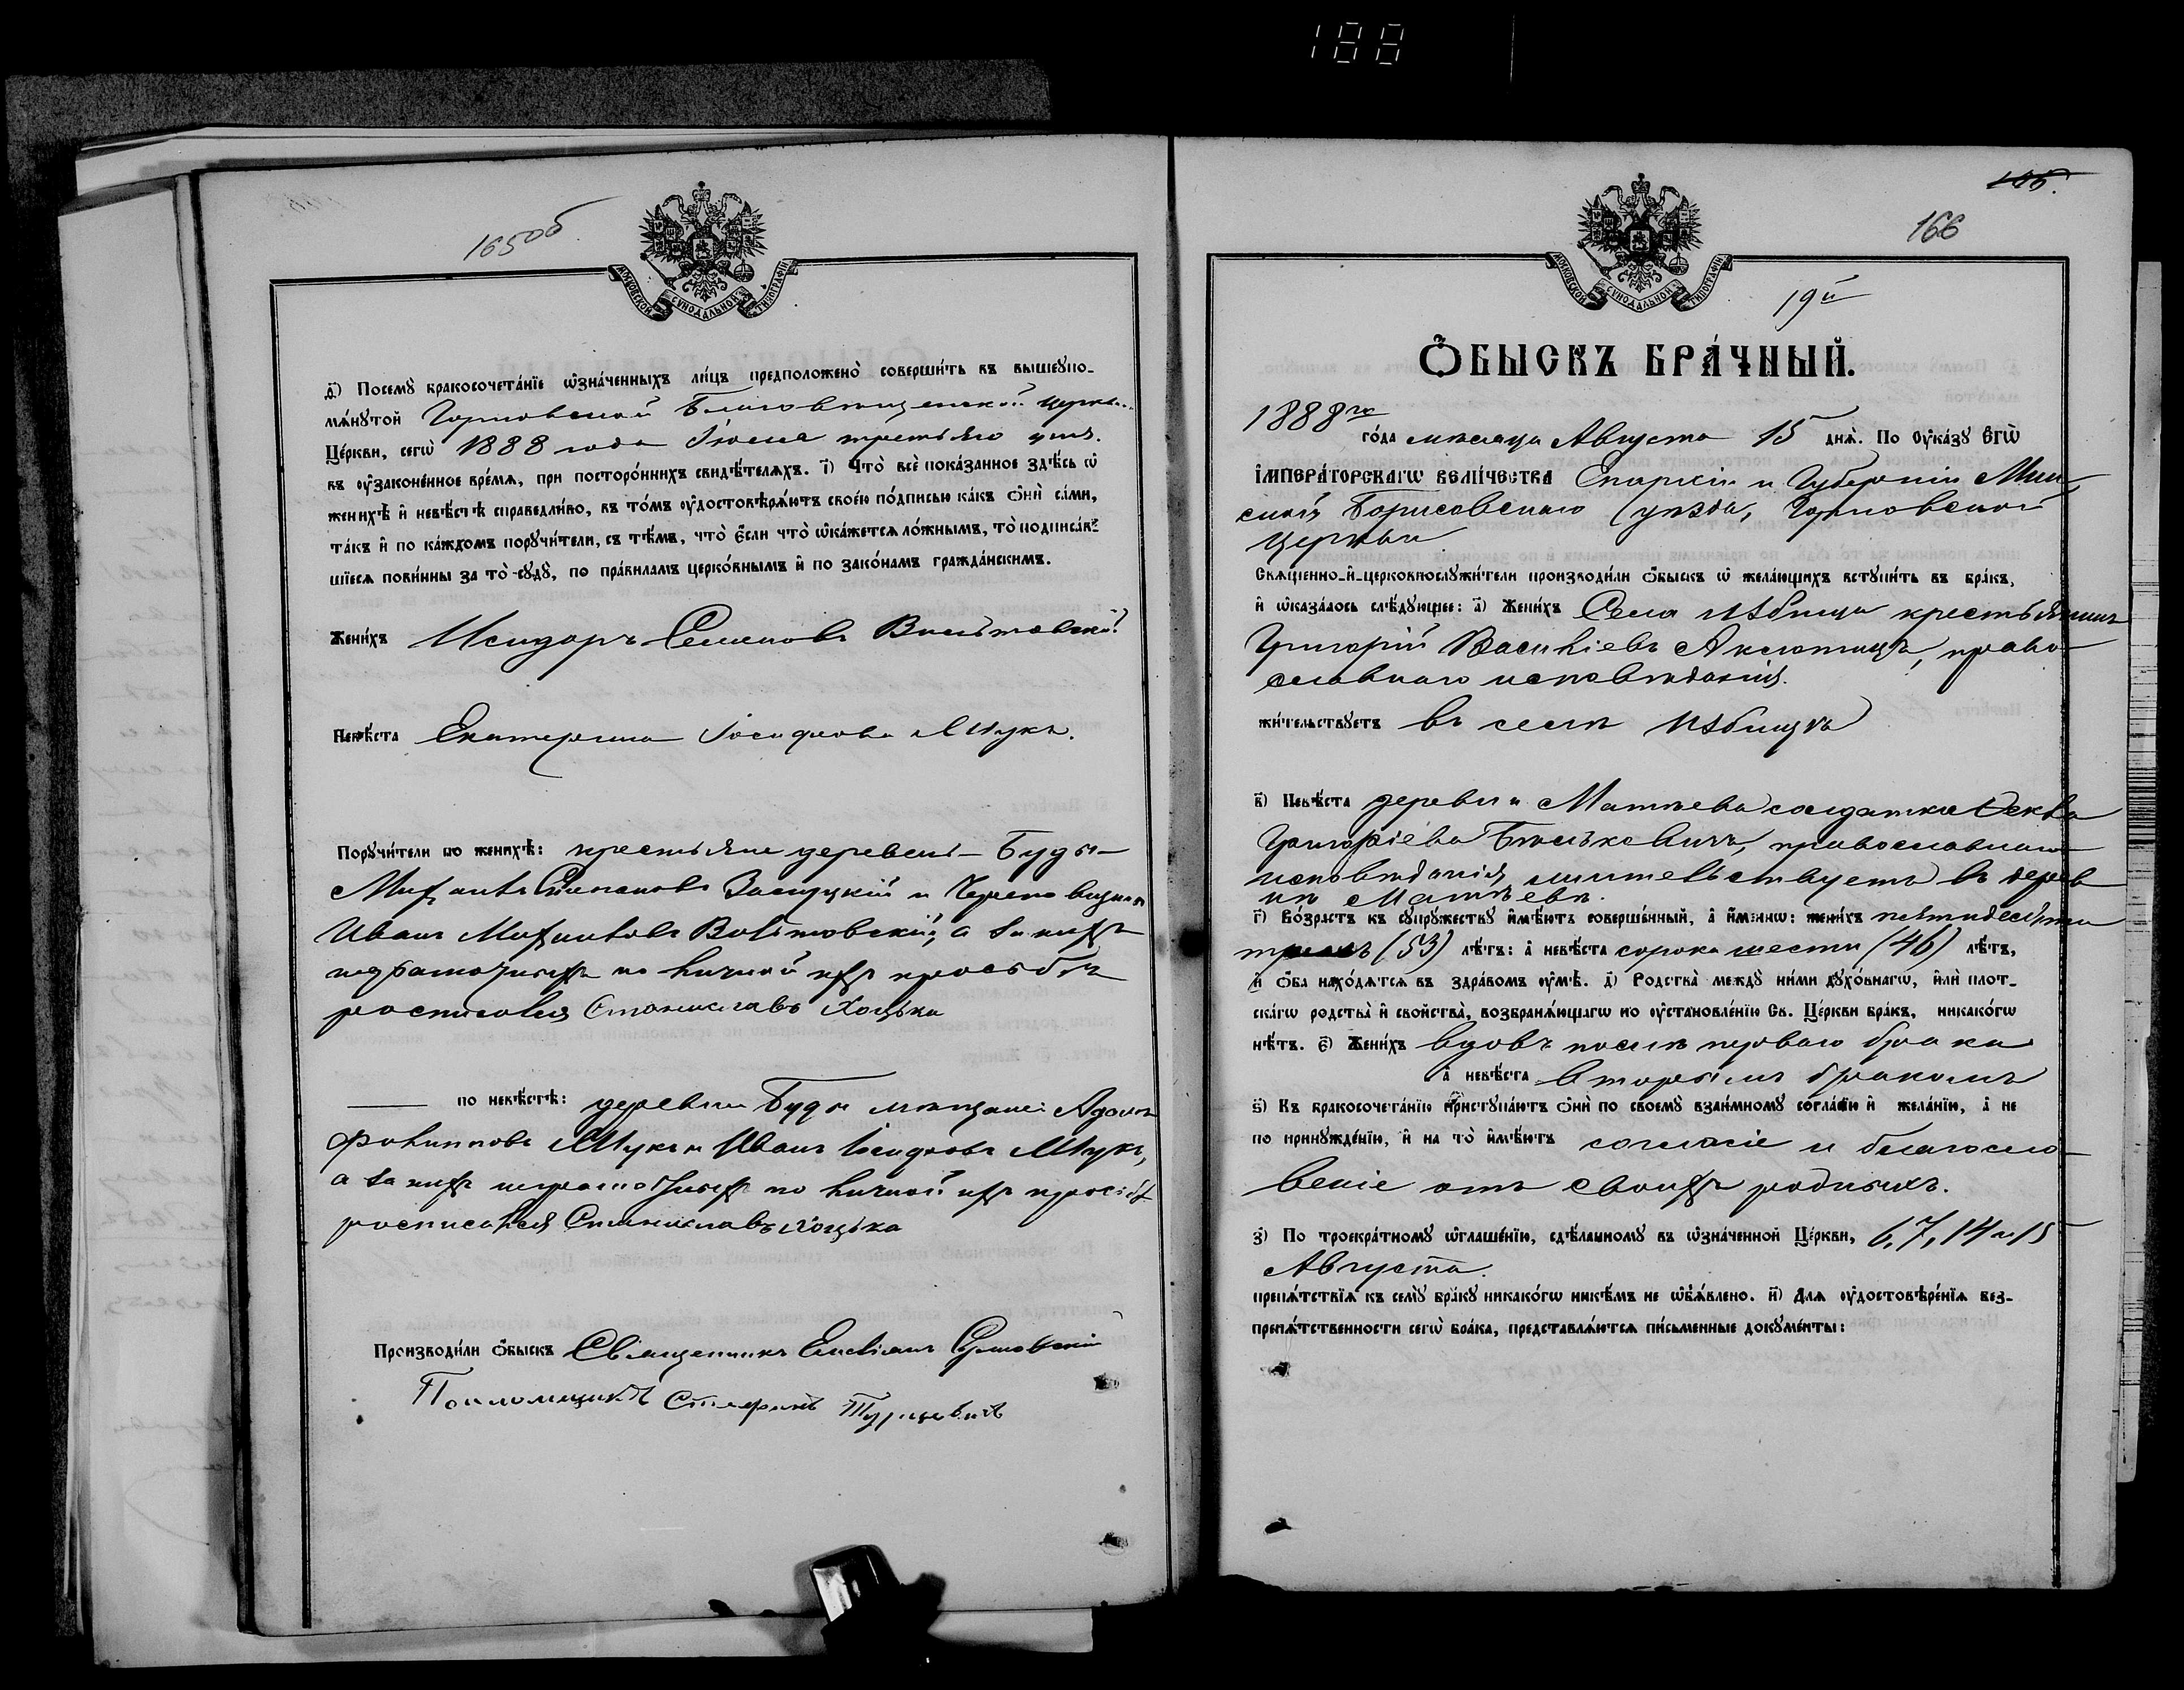 188
165об
МОСКОВСКОЙ СѴНОДАЛЬНОЙ ТИПОГРАФІИ
ѳ҃) Посемꙋ̀ бракосочета́нїе ѡ҆зна́ченныхъ ли́цъ предположено̀ соверши́ть въ вышеупо-
мѧ́нутой Благовѣщенской церкви
Це́ркви, сегѡ̀ 1888 года Іюля третьяго дня.
въ ᲂу҆законе́нное вре́мѧ, при посторо́ннихъ свидѣ́телѧхъ. і҃) Что̀ всѐ пока́занное здѣ́сь ѡ҆
женихѣ̀ и҆ невѣ́стѣ справедли́во, въ то́мъ ᲂу҆достовѣрѧ́ютъ свое́ю по́дписью ка́къ ѻ҆нѝ са́ми,
та́къ и҆ по ка́ждомъ порꙋчи́тели, съ тѣ́мъ, что̀ є҆́сли что̀ ѡ҆ка́жется ло́жнымъ, то̀ подписа́в-
шїесѧ пови́нны за то̀ сꙋдꙋ̀, по пра́виламъ церко́внымъ и҆ по зако́намъ гражда́нскимъ.
Жени́хъ Исидоръ Семеновъ
Невѣ́ста Екатерина Іосифова Шукъ.
Порꙋчи́тели по женихѣ̀: крестьяне деревень Буды
Михаилъ Степановъ и
Иванъ Михаиловъ а за нихъ
неграмотныхъ по личной ихъ просьбѣ
росписался Станиславъ
по невѣ́стѣ: деревни Буды мѣщане Адамъ
Филипповъ Шукъ и Иванъ Іосифовъ Шукъ,
а за нихъ неграмотныхъ по личной ихъ просьбѣ
росписался Станиславъ
Производи́ли ѻ҆́быскъ Священникъ
Псаломщикъ Стефанъ
166
МОСКОВСКОЙ СѴНОДАЛЬНОЙ ТИПОГРАФІИ
19й
Ѻ҆́БЫСКЪ БРА́ЧНЫЙ.
1888го
го́да мѣсяца Августа 15 днѧ̀. По ᲂу҆ка́зꙋ Є҆гѡ̀
І҆МПЕРА́ТОРСКАГѠ ВЕЛИ́ЧЕСТВА Епархіи и Губерніи Мин-
ской Борисовскаго уѣзда,
Церкви
Свѧще́нно-и҆-церковнослꙋжи́тели производи́ли ѻ҆́быскъ ѡ҆ жела́ющихъ вступи́ть въ бра́къ,
и҆ ѡ҆каза́лось слѣ́дующее: а҃) Жени́хъ Села крестьянинъ
Григорій Васильевъ Аксютицъ, право-
славнаго исповѣданія.
жи́тельствꙋетъ въ селѣ
в҃) Невѣ́ста деревни Матѣева солдатка
Григоріева православнаго
исповѣданія, жительствуетъ въ дерев-
нѣ Матѣевѣ.
г҃) Во́зрастъ къ сꙋпрꙋ́жествꙋ и҆мѣ́ютъ соверше́нный, а҆ и҆́меннѡ: жени́хъ пятидесяти
трехъ (53) лѣ́тъ: а҆ невѣ́ста сорока шести (46) лѣ́тъ,
и҆ ѻ҆́ба нахо́дѧтсѧ въ здра́вомъ ᲂу҆мѣ̀. д҃) Родства̀ междꙋ̀ ни́ми дꙋхо́внагѡ, и҆лѝ пло́т-
ска́гѡ родства̀ и҆ свойства̀, возбранѧ́ющагѡ по ᲂу҆становле́нїю Св. Це́ркви бра́къ, никако́гѡ
нѣ́тъ. є҃) Жени́хъ вдовъ послѣ перваго брака
а҆ невѣ́ста вторымъ бракомъ
ѕ҃) Къ бракосочета́нїю пристꙋпа́ютъ ѻ҆нѝ по своемꙋ̀ взаи́мномꙋ согла́сїю и҆ жела́нїю, а҆ не
по принꙋжде́нїю, и҆ на то̀ и҆мѣ́ютъ согласіе и благосло-
веніе отъ своихъ родныхъ.
з҃) По троекра́тномꙋ ѡ҆глаше́нїю, сдѣ́ланномꙋ въ ѡ҆зна́ченной Це́ркви, 6, 7, 14 и 15
Августа.
препѧ́тствїѧ къ семꙋ̀ бра́кꙋ никако́гѡ никѣ́мъ не ѡ҆б̾ѧ́влено. и҃) Длѧ ᲂу҆достовѣре́нїѧ без-
препѧ́тственности сегѡ̀ бра́ка, представлѧ́ются пи́сьменные докꙋме́нты: